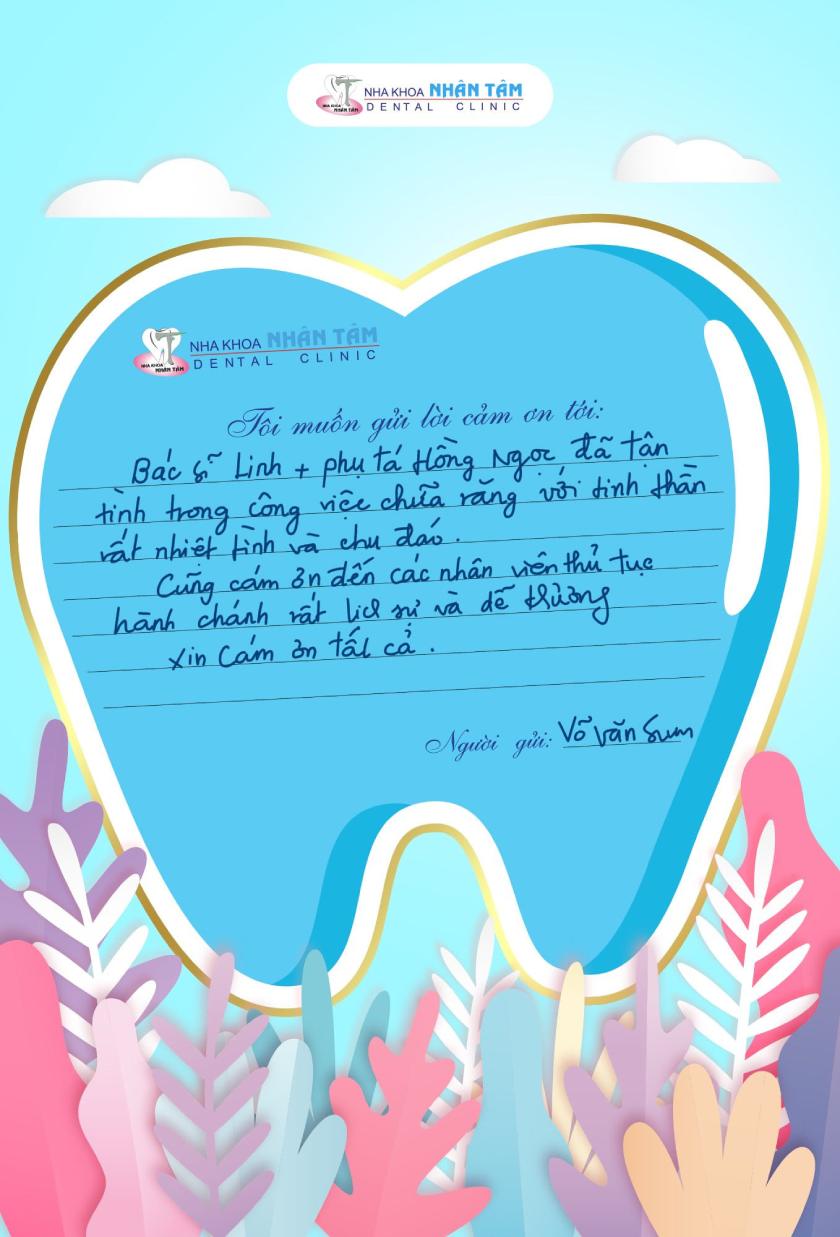 NHA KHOA NHÂN TÂM
DENTAL CLINIC
NHA KHOA
NHÂN TÂM
NHA KHOA NHÂN TÂM
DENTAL CLINIC
NHA KHOA
NHÂN TÂM
Tôi muốn gửi lời cảm ơn tới:
Bác sĩ Linh + phụ tá Hồng Ngọc đã tận
tình trong công việc chữa răng với tinh thần
rất nhiệt tình và chu đáo.
Cũng cám ơn đến các nhân viên thủ tục
hành chánh rất lịch sự và dễ thường
Xin Cám ơn tất cả.
Người gửi: Võ Văn Sum